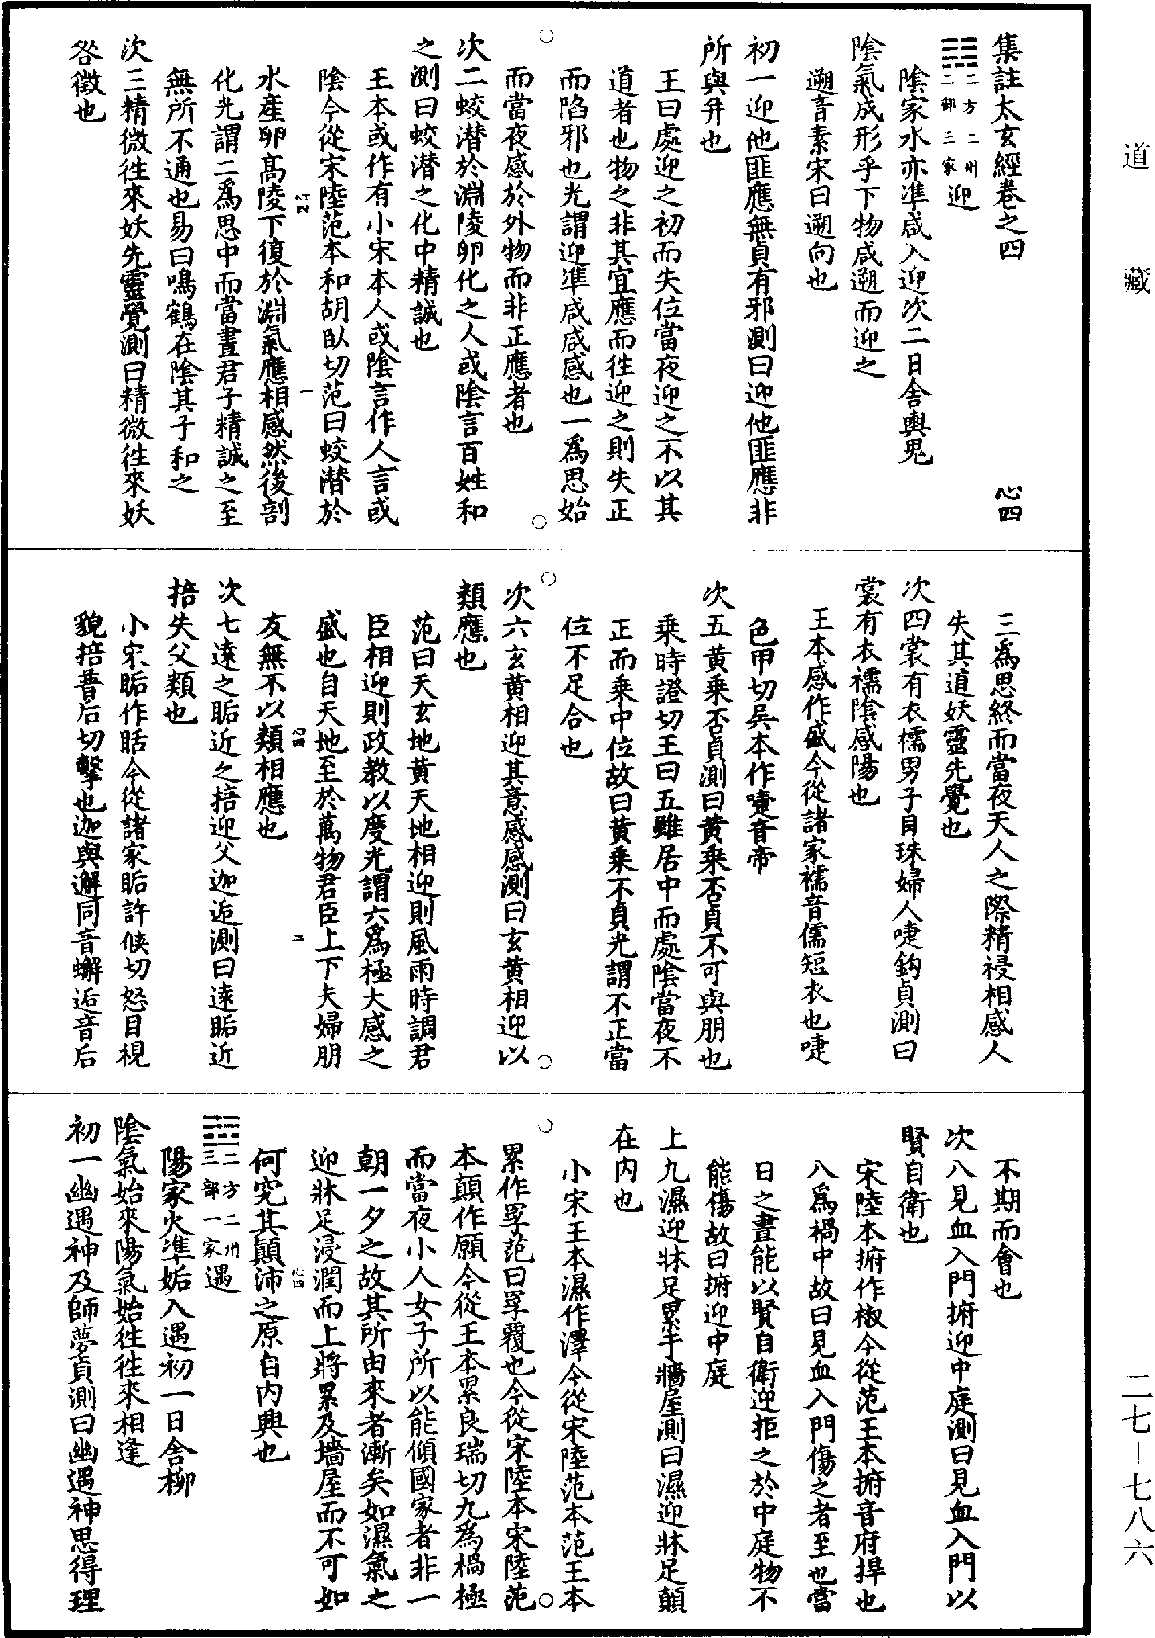 道藏
集註太玄經卷之四
心四
二方二州
二部三家
迎
陰家水亦準咸入迎次二日舍輿鬼
陰氣成形乎下物咸遡而迎之
遡音素宋曰遡向也
初一迎他匪應無貞有邪測曰迎他匪應非
所與并也
王曰處迎之初而失位當夜迎之不以其
道者也物之非其宜應而徃迎之則失正
而陷邪也光謂迎準咸咸感也一為思始
而當夜感於外物而非正應者也
次二蛟潛於淵陵卵化之人或陰言百姓和
之測曰蛟潛之化中精誠也
王本或作有小宋本人或陰言作人言或
陰今從宋陸范本和胡臥切范曰蛟潛於
水產卵高陵下復於淵氣應相感然後剖
化光謂二為思中而當晝君子精誠之至
無所不通也易曰鳴鶴在陰其子和之
次三精微徃來妖先靈覺測曰精微徃來妖
咎徵也
心四
一
三為思終而當夜天人之際精祲相感人
失其道妖靈先覺也
次四裳有衣襦男子目珠婦人啑鈎貞測曰
裳有衣襦陰感陽也
王本感作盛今從諸家襦音儒短衣也啑
色甲切吳本作嚏音帝
次五黃乘否貞測曰黃乘否貞不可與朋也
乘時證切王曰五雖居中而處陰當夜不
正而乘中位故曰黃乘不貞光謂不正當
位不足合也
次六玄黃相迎其意感感測曰玄黃相迎以
類應也
范曰天玄地黃天地相迎則風雨時調君
臣相迎則政教以度光謂六為極大感之
盛也自天地至於萬物君臣上下夫婦朋
友無不以類相應也
次七遠之眗近之掊迎父迦逅測曰遠眗近
掊失父類也
小宋眗作䀨今從諸家眗許候切怒目視
貌掊普后切擊也迦與邂同音蠏逅音后
心四
二
不期而會也
次八見血入門捬迎中庭測曰見血入門以
賢自衛也
宋陸本捬作椒今從范王本捬音府捍也
八為禍中故曰見血入門傷之者至也當
日之晝能以賢自衛迎拒之於中庭物不
能傷故曰捬迎中庭
上九濕迎牀足累于牆屋測曰濕迎牀足顛
在內也
小宋王本濕作澤今從宋陸范本范王本
累作罦范曰罦覆也今從宋陸本宋陸范
本顛作願今從王本累良瑞切九為禍極
而當夜小人女子所以能傾國家者非一
朝一夕之故其所由來者漸矣如濕氣之
迎牀足浸潤而上將累及墻屋而不可如
何究其顛沛之原自內興也
心四
二方二州
三部一家
遇
陽家火準姤入遇初一日舍柳
陰氣始來陽氣始徃徃來相逢
初一幽遇神及師夢貞測曰幽遇神思得理
二七—七八六